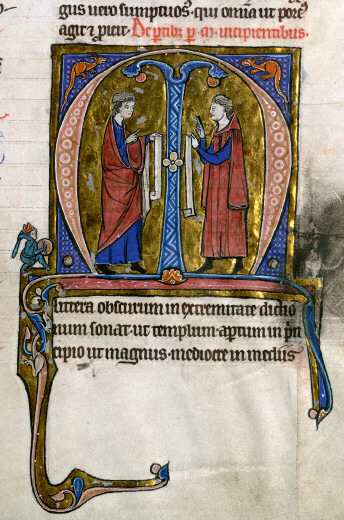 gus uero sumptuos⁹. qui omia ut
agit &
De ptib; p. M. incipientibus.
M
littera obscurum in extremitate dictio
num sonat. ut templum. aptum in pⁱn
cipio ut magnus. mediocre in mediis